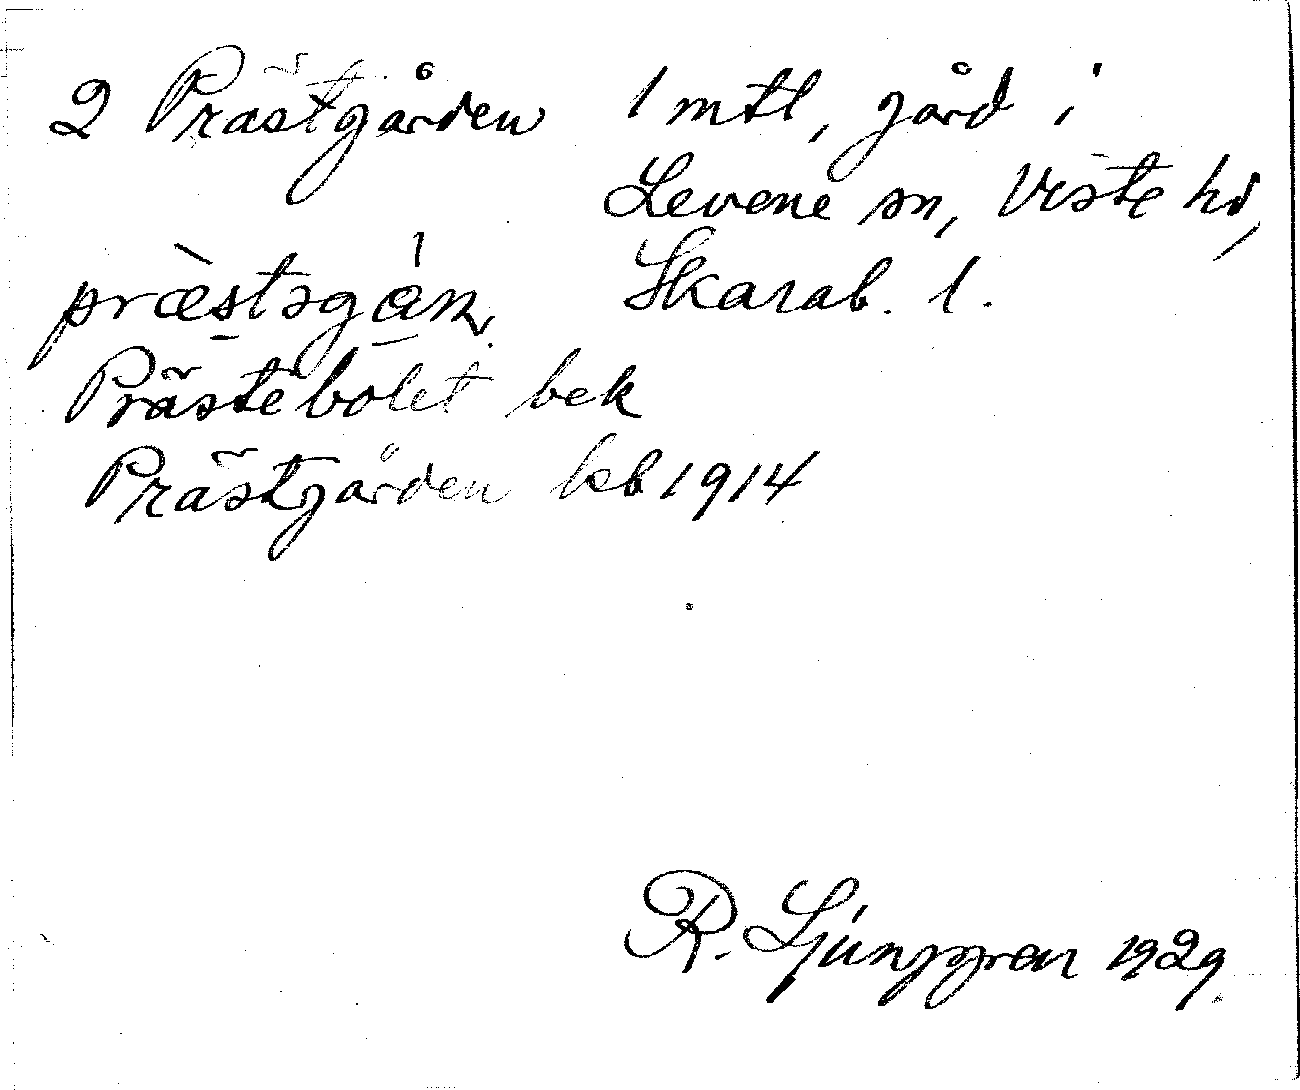 2 Prästgården 1 mtl, gård i
Levene sn, Viste hd,
Skarab. l.
Prästebolet bek
Prästgården kb 1914
R. Ljunggren 1929.